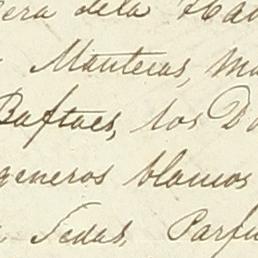 era dela Ha
Mantecas, Ma
Baftaes, los D
generos blancos
Sedas, Parfu